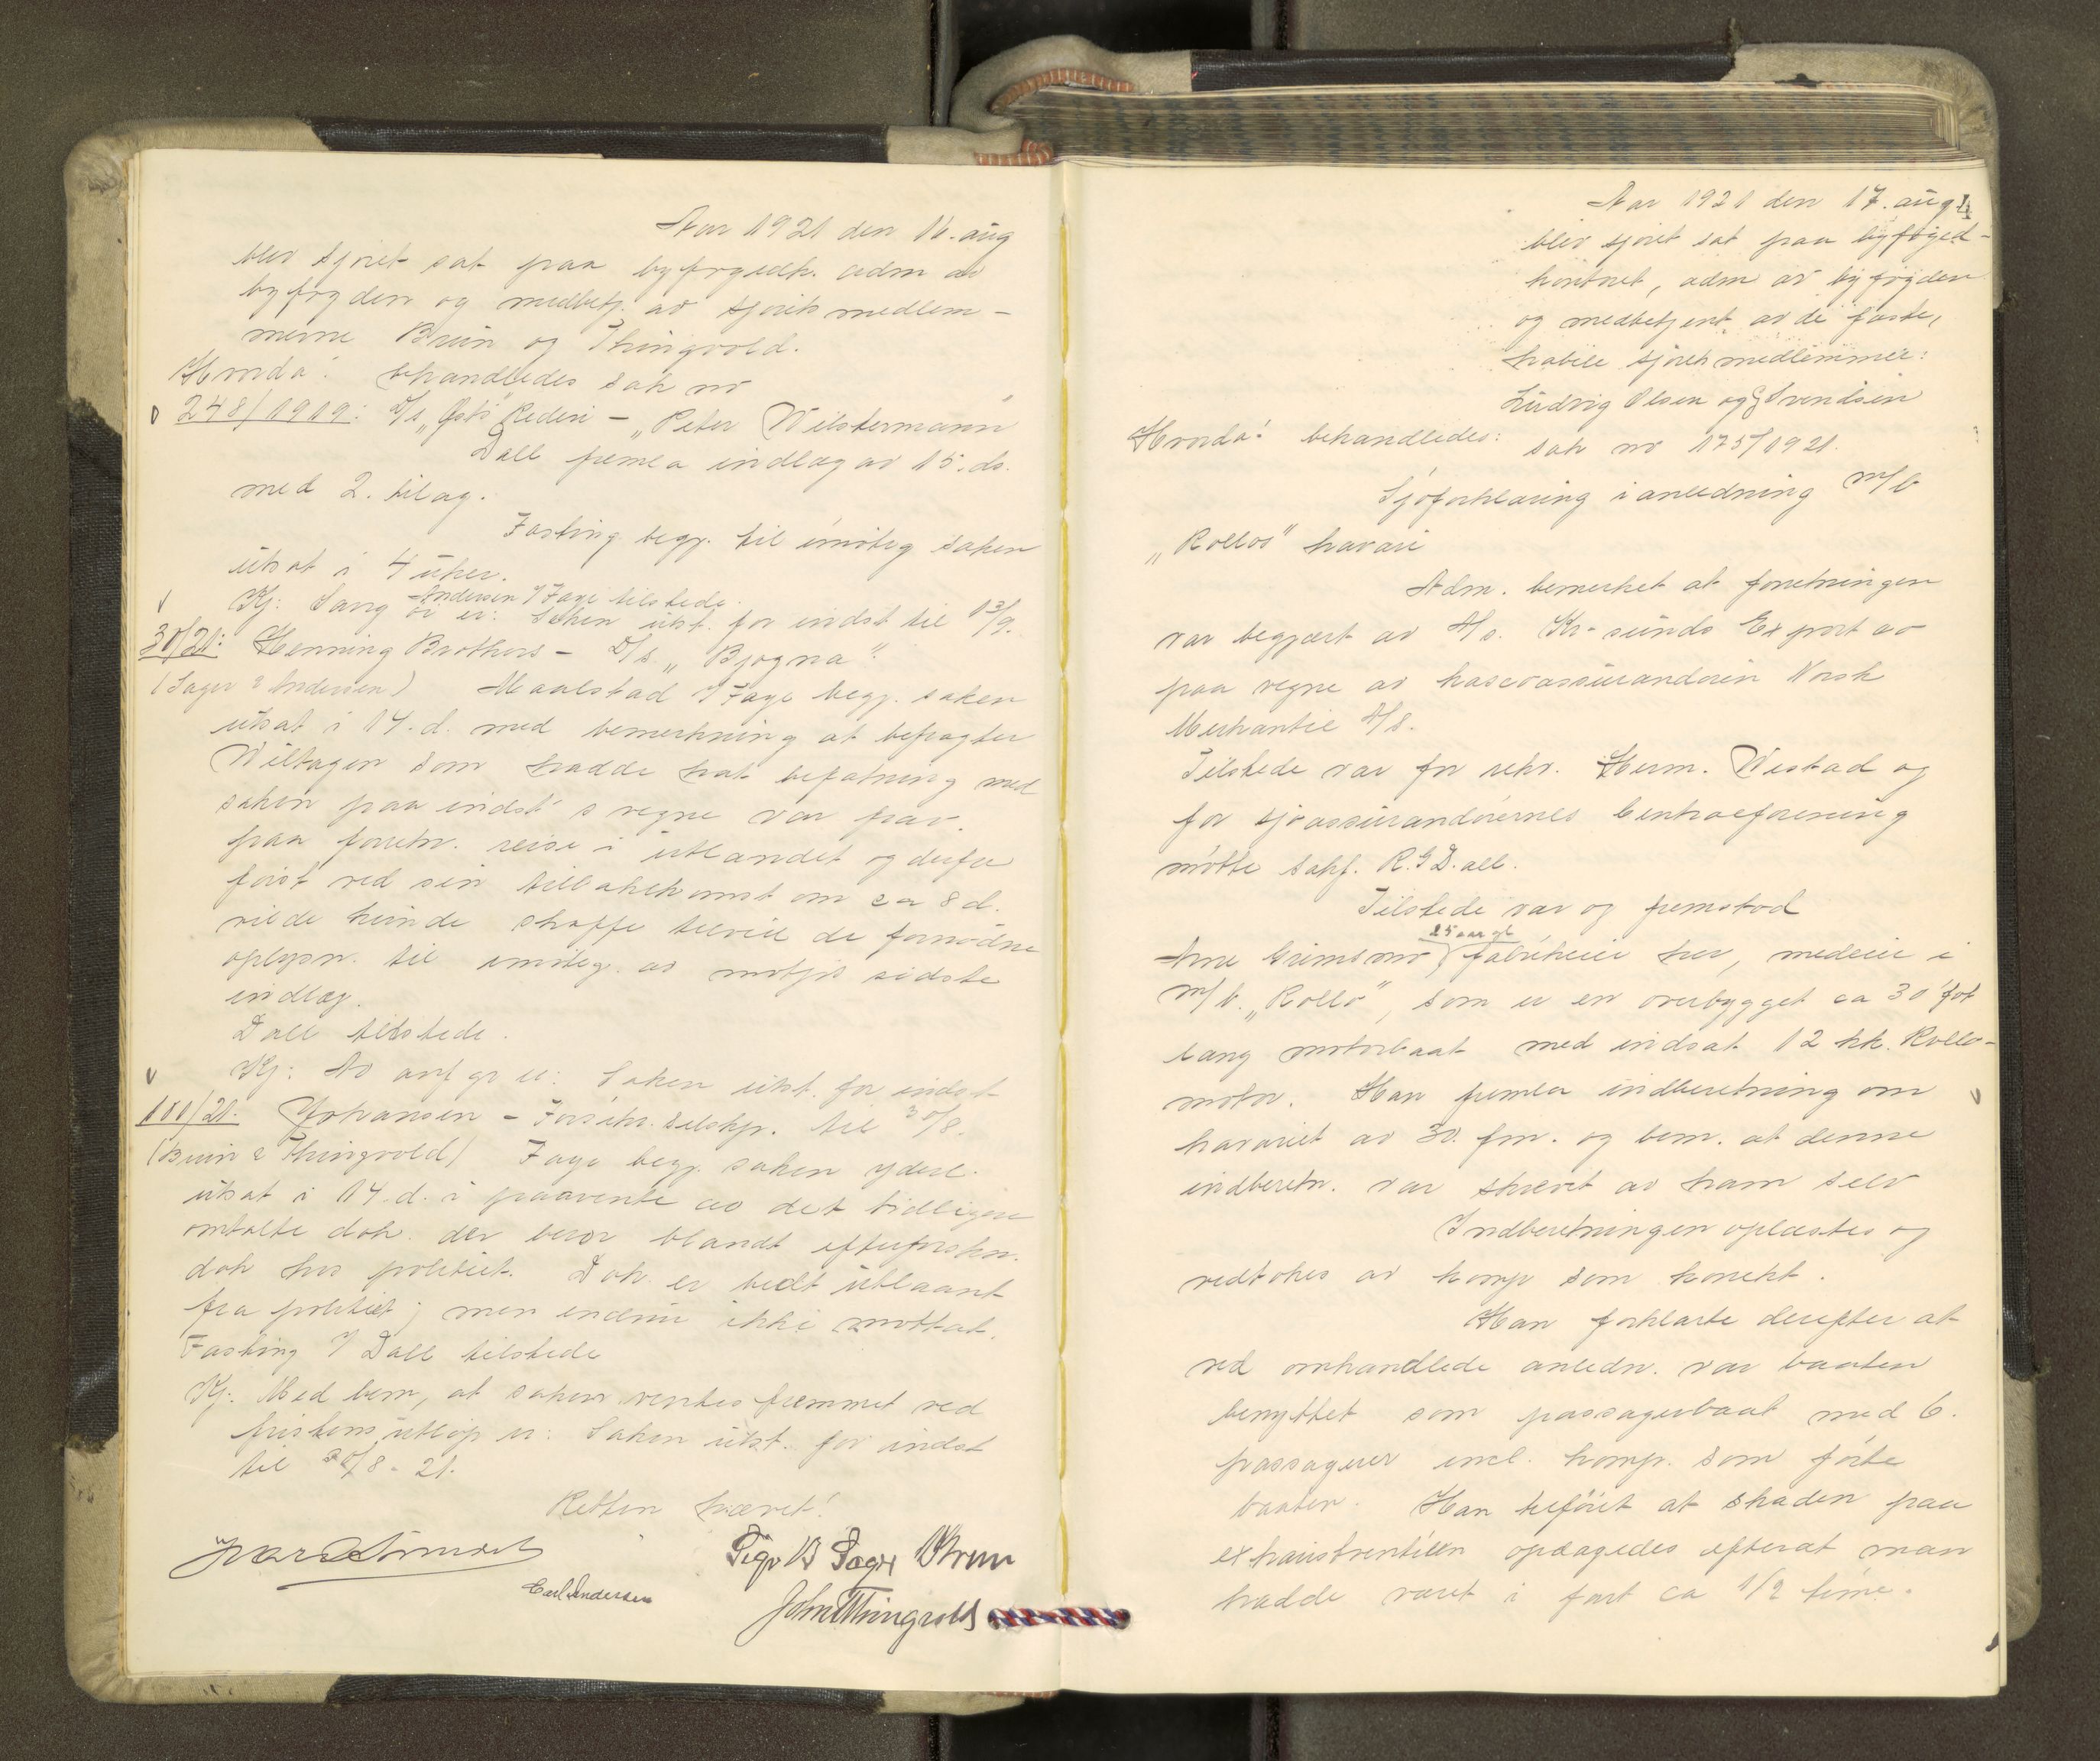 Aar 1921 den 16. aug
blev sjøret sat paa byfogedk. adm av
byfogden og medbetj. av sjøretsmedlem-
merne Bruun og Thingvold.
Hvorda: behandledes sak nr
248/1919: D/s „Østs" Rederi - „Peter Wilstermann"
Dall fremla indlæg av 15. ds.
med 2. bilag.
Fasting begj. til imøteg saken
utsat i 4 uker.
Andersen / Faye tilstede.
Kj: Saken utst. for indst til 13/9.
30/21: Henning Brothers - D/s „Bjogna".
(Sager & Andersen) Maalstad / Faye begj. saken
utsat i 14. d. med bemerkning at befragter
Wiltagen som hadde hat befatning med
saken paa indst's vegne var frav.
paa forretn. reise i utlandet og derfor
først ved sin tilbakekomst om ca 8 d.
vilde kunde skaffe tilveie de fornødne
oplysn. til imøteg. av motp's sidste
indlæg.
Dall tilstede.
Kj: Saken utst. for indst
til 30/8.
100/21. Johansen - Forsikr. selskp.
(Bruun & Thingvold) Faye begj. saken yderl.
utsat i 14. d. i paavente av det tidligere
omtalte dok. der beror blandt efterforskn.
dok hos politiet. Dok. er bedt utlaant
fra politiet; men endnu ikke mottat.
Fasting / Dall tilstede
Kj. Med bem, at saken ventes fremmet ved
fristens utløp er: Saken utst. for indst
til 30/8 - 21.
Retten hævet!
Carl Andersen
Sigv B Sager Bruun
John Thingvold
Aar 1921 den 17. aug 4
blev sjøret sat paa byfoged-
kontoret, adm av byfogden
og medbetjent av de faste,
habile sjøretsmedlemmer:
Ludvig Olsen og G Svendsen
Hvorda: behandledes: sak nr 175/1921.
Sjøforklaring i anledning m/b
„Rollos" havari
Adm. bemerket at forretningen
var begjært av A/s. Kr-sunds Export av
paa vegne av kascoassurandøren Norsk
Merkantil A/S.
Tilstede var for rekv. Herm. Vestad og
for sjøassurandørernes Centralforening
møtte sakf. R. G Dall.
Tilstede var og fremstod
25 aar gl
Arne Grimsmo, fabrikeier her, medeier i
m/b. „Rollo", som er en overbygget ca 30 fot
lang motorbaat med indsat 12 hk. Rollo-
motor. Han fremla indberetning om
havariet av 30. fm. og bem. at denne
indberetn. var skrevet av ham selv
Indberetningen oplæstes og
vedtokes av komp som korrekt.
Han forklarte derefter at
ved omhandlede anledn. var baaten
benyttet som passagerbaat med 6.
passagerer incl. komp. som førte
baaten. Han tilføiet at skaden paa
exhaustventilen opdagedes efterat man
hadde været i fart ca 1/2 time.